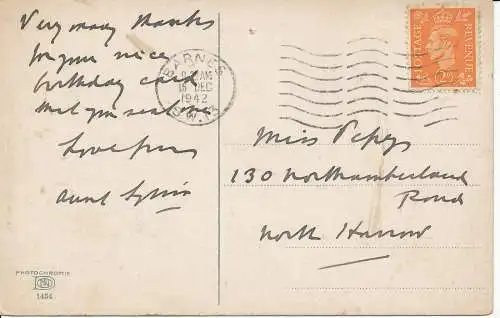 Very many thanks
for your nice
birthday card
that you sent me
Love from
Aunt
PHOTOCHROMIE
1454
BARNES
AM
15 DEC
1942
S.W.13
POSTAGE
REVENUE
2½D
Miss Pepys
130 Northumberland
Road
North Harrow